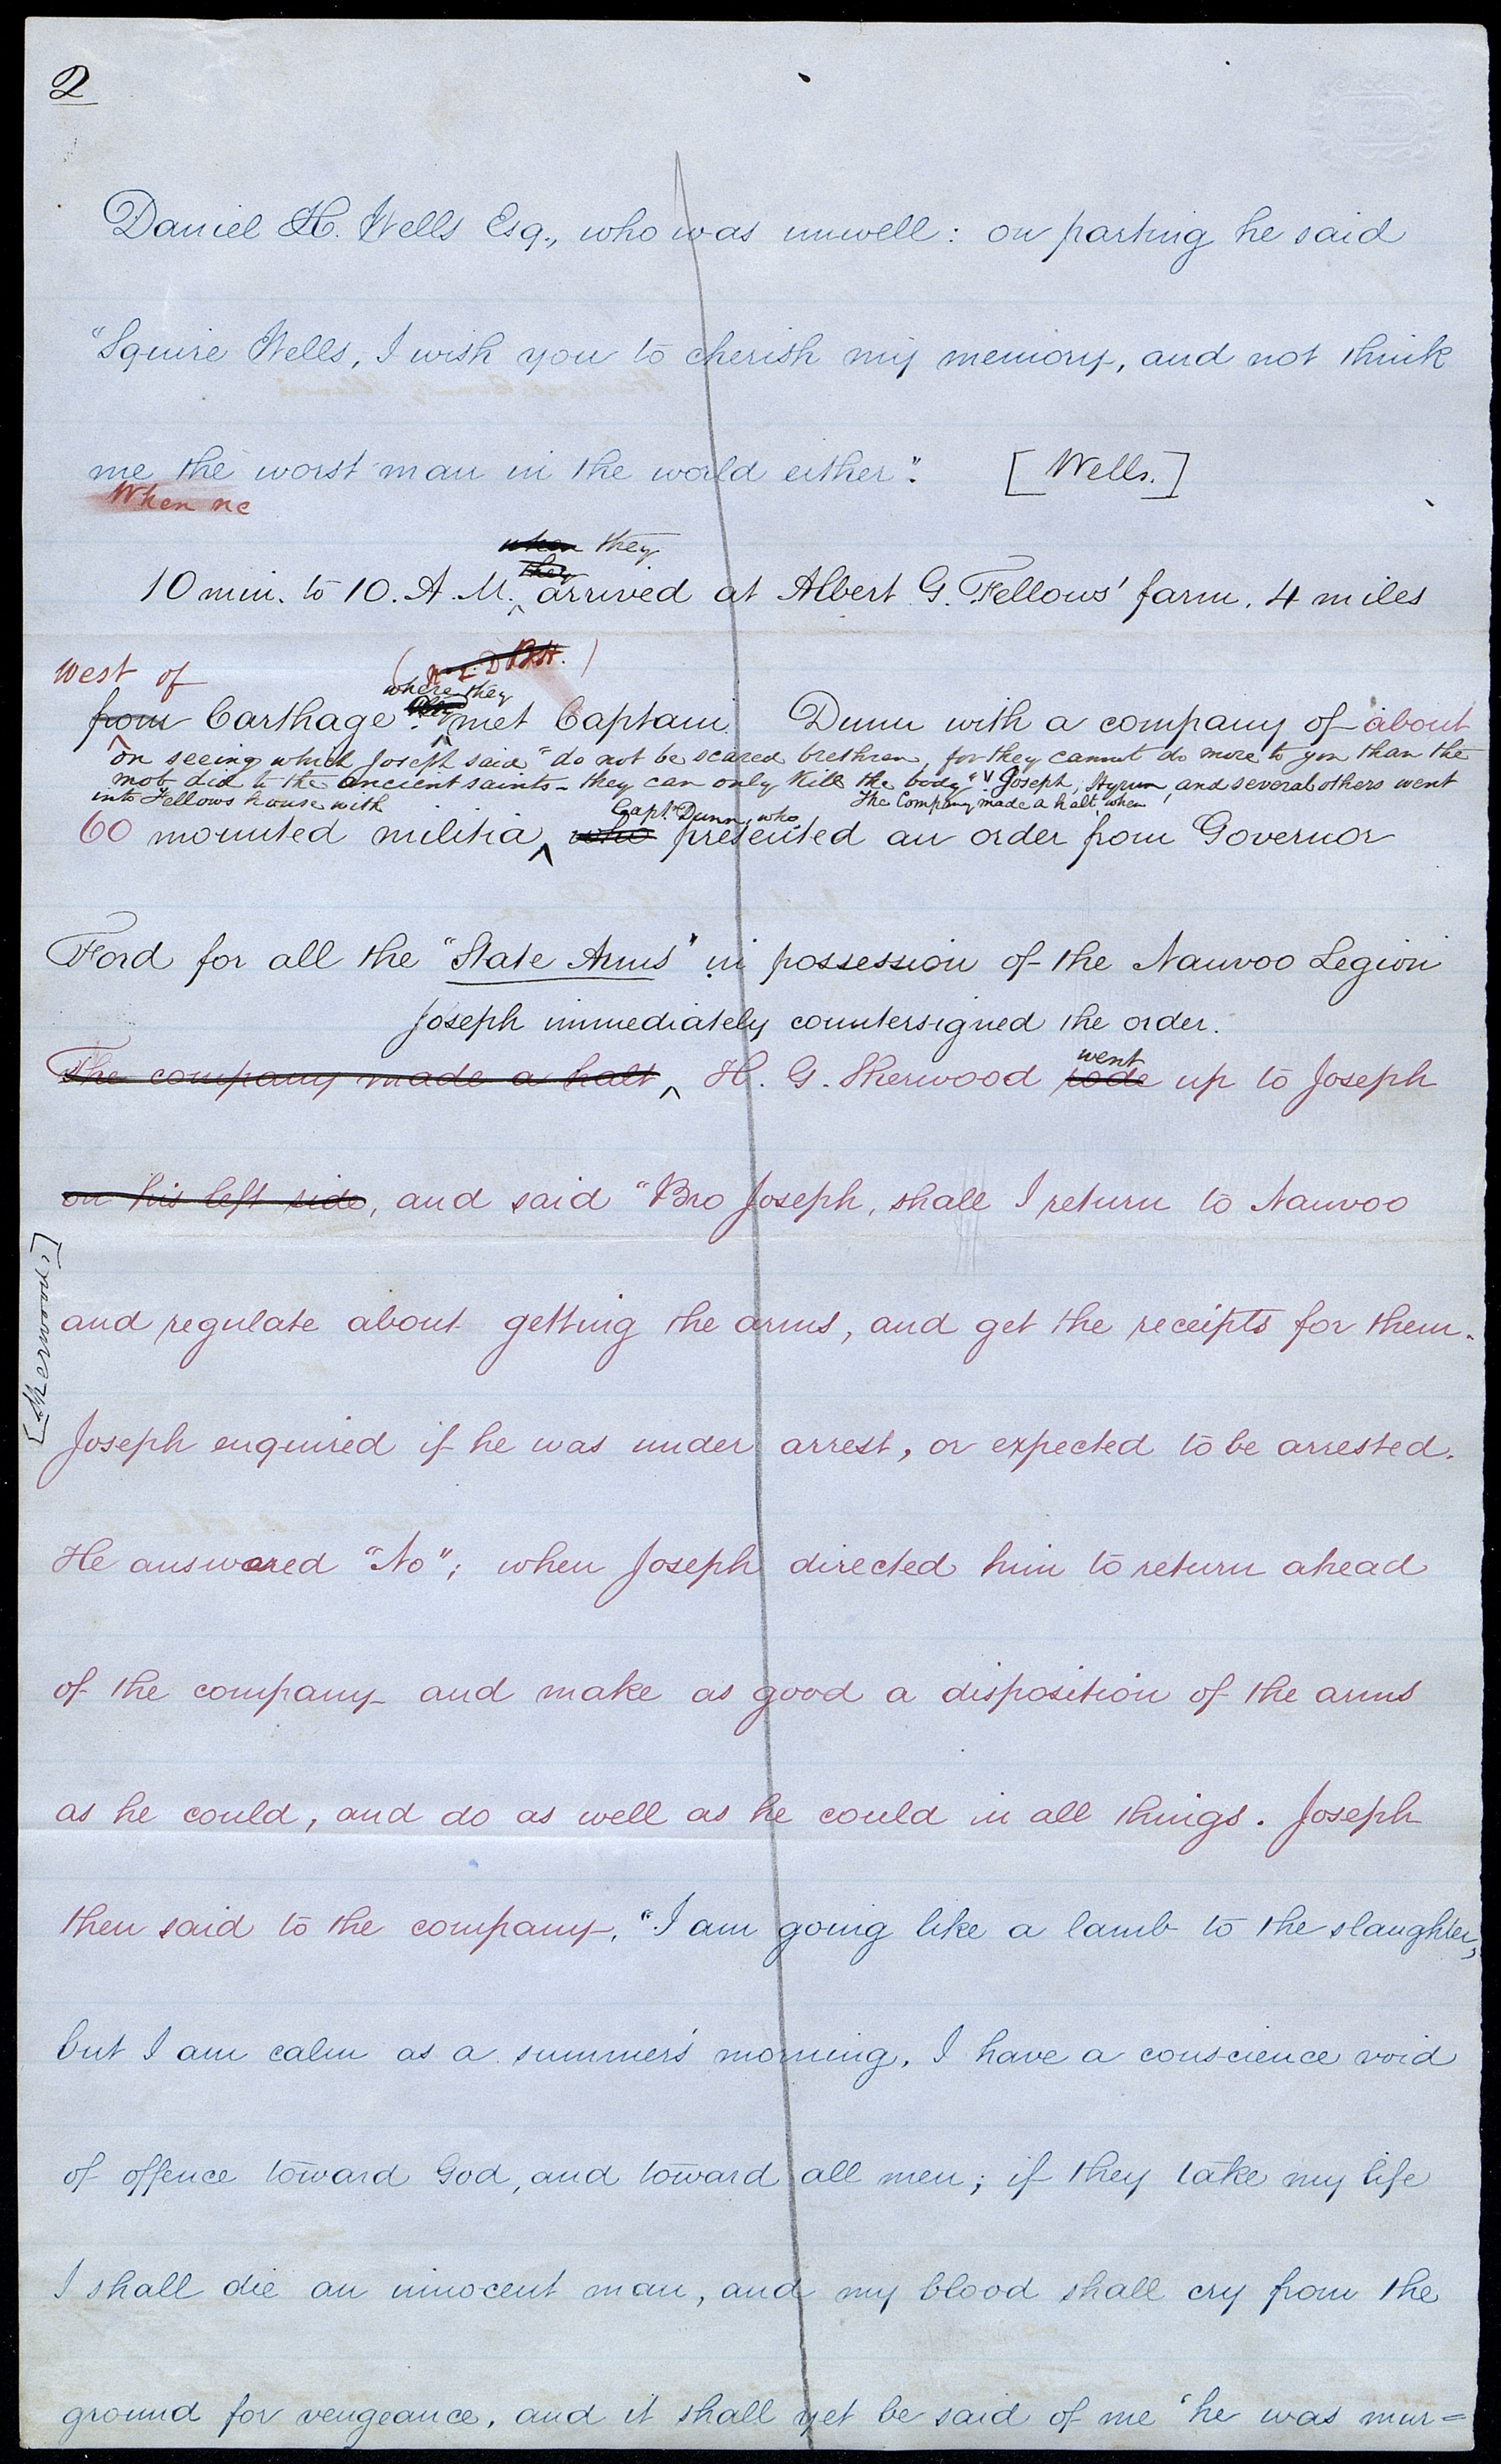 2
Daniel H. Wells Esq., who was unwell: on parting he said
"Squire Wells, I wish you to cherish my memory, and not think
me the worst man in the world either". [Wells.]
When he
when they
they
10 min. to 10. A. M. arrived at Albert G. Fellows' farm, 4 miles
west of
where they
from Carthage met Captain Dunn with a company of about
on seeing which Joseph said "do not be scared brethren, for they cannot do more to you than the
mob did to the ancient saints - they can only kill the body". Joseph, Hyrum, and several others went
into Fellows house with The Company made a halt, when
Capt. Dunn, who
60 mounted militia, who presented an order from Governor
Ford for all the "State Arms" in possession of the Nauvoo Legion
Joseph immediately countersigned the order.
went
The company made a halt H. G. Sherwood rode up to Joseph
on his left side, and said "Bro Joseph, shall I return to Nauvoo
and regulate about getting the arms, and get the receipts for them.
[Sherwood.]
Joseph enquired if he was under arrest, or expected to be arrested.
He answered "No"; when Joseph directed him to return ahead
of the company and make as good a disposition of the arms
as he could, and do as well as he could in all things. Joseph
then said to the company, "I am going like a lamb to the slaughter,
but I am calm as a summer's morning, I have a conscience void
of offence toward God, and toward all men; if they take my life
I shall die an innocent man, and my blood shall cry from the
ground for vengeance, and it shall yet be said of me "he was mur=